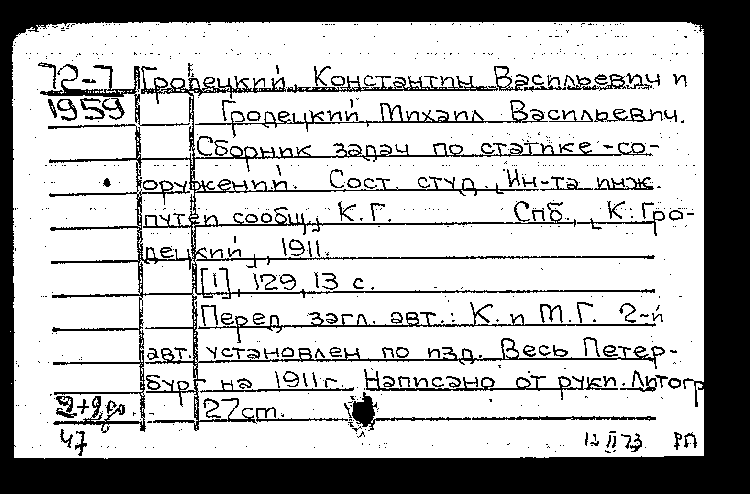 72-7 Гродецкий, Константин Васильевич и
1959 Гродецкий, Михаил Васильевич.
Сборник задач по статике со-
оружений. Сост. студ. [Ин-та инж.
путей сообщ.] К.Г. Спб., [К. Гро-
децкий], 1911.
[1], 129, 13 с.
Перед загл. авт.: К. и М.Г. 2-й
авт. установлен по изд. Весь Петер-
бург на 1911г. Написано от руки. Литогр
27см.
47 12 II 73 РП